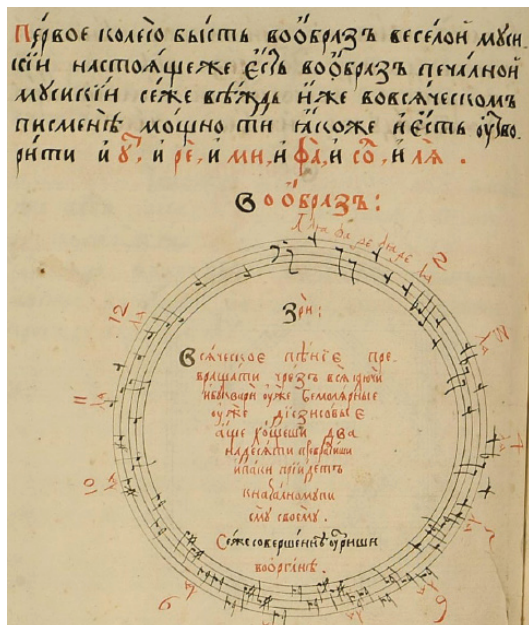 Первое колесо бысть воѡбразъ веселой муси
кїи настоящеже єсть воѡбразъ печалной
мусикїи сеже вѣждь иже вовсяческомъ
писменѣ мощно ти якоже и єсть оутво-
рити и ут, и ре, и ми, и фа, и со, и ля .
Воѡбразъ :
Зри :
Всяческоє пѣнїє пре-
вращати чрезъ вся ключи
ибуквари оуже бемолярныє
оуже дїезисовыє
аще хощеши два
надесяти превратиши
ипаки прїидетъ
кначалному пи
ему своєму .
Сеже совершеннѣ оузриши
воѡрганѣ .
2
12
11
10
9
6
ля
ля
ля